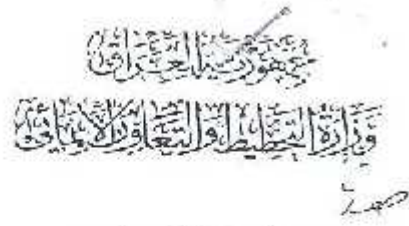 جمهورية العراق
وزارة التخطيط والتعاون الإنمائي